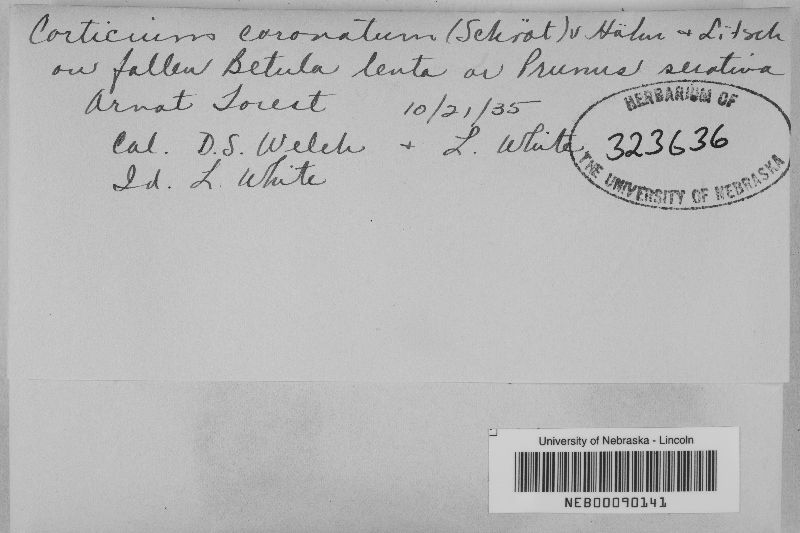 Corticium coronatum (Schröt) v Höhn & Litsch
on fallen Betula lenta or Prunus serotina
Arnot Forest 10/21/35
Col. D.S. Welch & L. White
Id. L. White
HERBARIUM OF
323636
THE UNIVERSITY OF NEBRASKA
University of Nebraska - Lincoln
NEB00090141